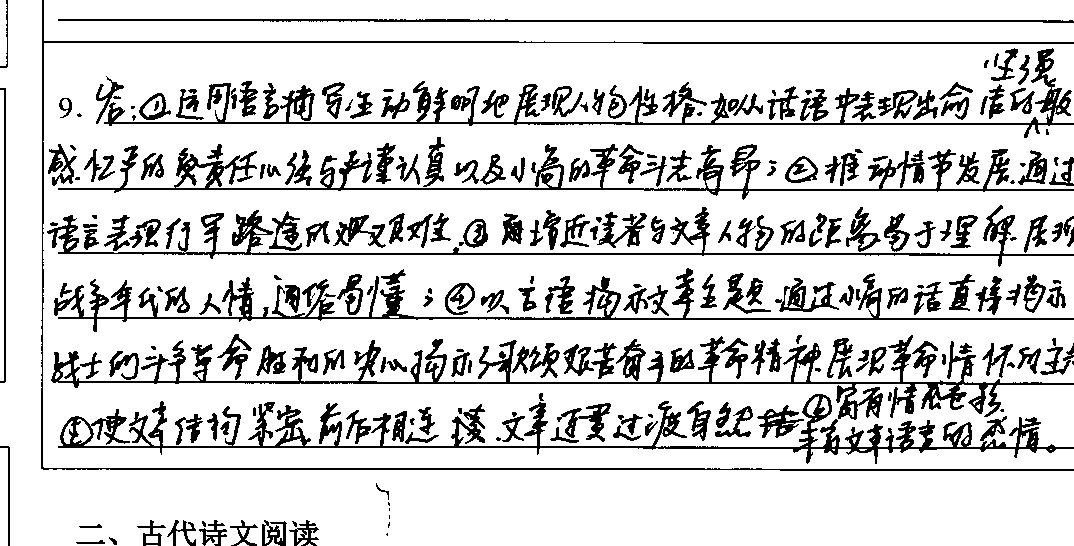 9. 答:①运用语言描写生动鲜明地展现人物性格.如从话语中表现出俞洁的坚强敏
感忆严的负责任心强与严谨认真以及小高的革命斗志高昂;②推动情节发展.通过
语言表现行军路途的艰难.③增近读者与文章人物的距离易于理解.展现
战争年代的人情,通俗易懂;④以言语揭示文章主题.通过小高的话直接揭示
战士们斗争革命胜利的决心揭示歌颂艰苦奋斗的革命精神.展现革命情怀的主
⑤使文章结构紧密.前后相连.文章连贯过渡自然
富有情感色彩
丰富文章语言的感情。
二、古代诗文阅读